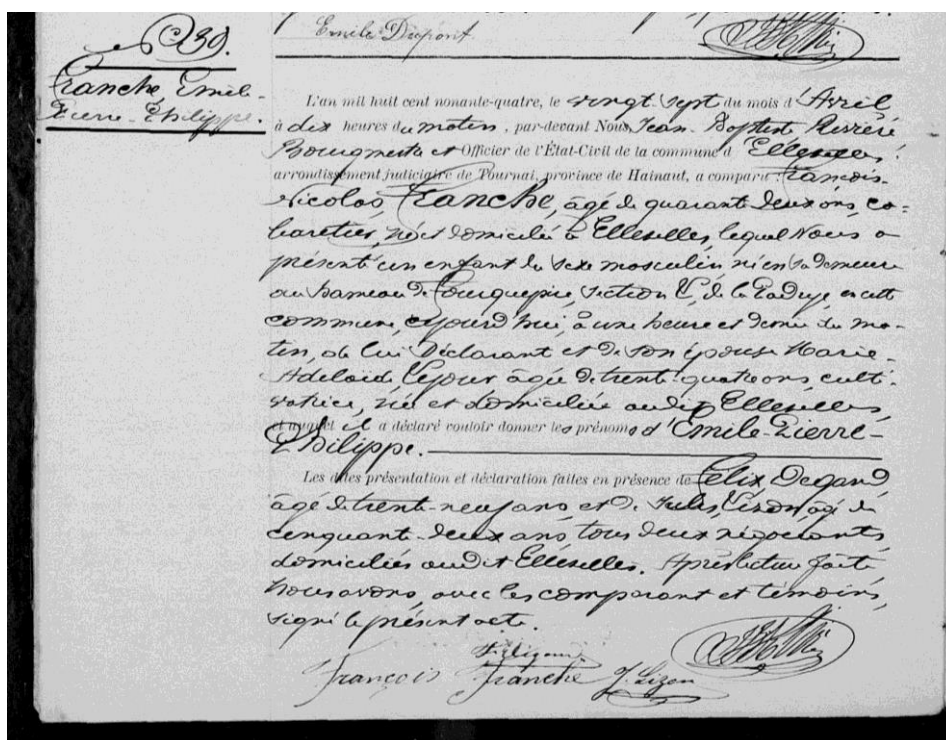 Emile Dupont.
39.
Franche, Emile-
Pierre-Philippe.
L'an mil huit cent nonante-quatre, le vingt-sept du mois d'Avril
à dix heures du matin, par-devant Nous, Jean-Baptiste
Bourgmestre et Officier de l'État-Civil de la commune d'Ellezelles,
arrondissement judiciaire de Tournai, province de Hainaut, a comparu : François-
Nicolas Franche, âgé de quarante deux ans, ca=
baretier, né et domicilié à Ellezelles, lequel Nous a
présenté un enfant du sexe masculin né en sa demeure
au hameau de section de la en cette
commune, cejourd'hui, à une heure et demie du ma-
tin, de lui Déclarant et de son épouse Marie-
Adelaïde âgée de trente-quatre ans, culti-
vatrice, née et domiciliée audit Ellezelles,
et auquel il a déclaré vouloir donner les prénoms d'Emile-Pierre-
Philippe.
Les dites présentation et déclaration faites en présence de Félix Degand,
âgé de trente-neuf ans et de Jules Lizon âgé de
cinquante-deux ans, tous deux négociants
domiciliés audit Ellezelles. Après lecture faite
Nous avons, avec les comparant et témoins,
signé le présent acte.
François Franche J. Lizon